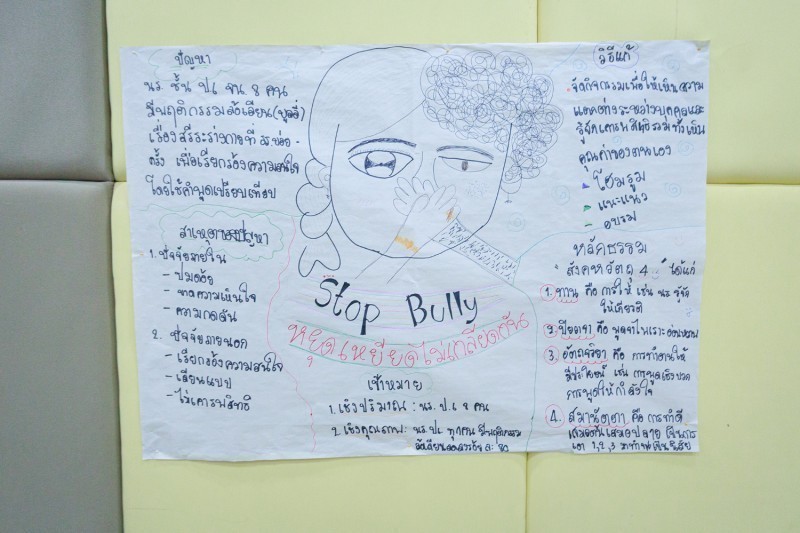 ปัญหา
นร. ชั้น ป.6 จน. 8 คน
มีพฤติกรรมล้อเลียน(บูลลี่)
เรื่องสรีระร่างกายที่
ครั้ง เพื่อเรียกร้องความสนใจ
โดยใช้คำพูดเปรียบเทียบ
สาเหตุของปัญหา
1. ปัจจัยภายใน
- ปมด้อย
- ขาดความเห็นใจ
- ความกดดัน
2. ปัจจัยภายนอก
- เรียกร้องความสนใจ
- เลียนแบบ
- ไม่เคารพสิทธิ
Stop Bully
หยุดเหยียดไม่เกลียดกัน
เป้าหมาย
1. เชิงปริมาณ : นร. ป.6 8 คน
2. เชิงคุณภาพ : นร. ป.6 ทุกคน มีพฤติกรรม
ล้อเลียนลดลงร้อยละ 80
วิธีแก้
จัดกิจกรรมเพื่อให้เห็นความ
แตกต่างระหว่างบุคคลและ
รู้สึกเคารพสิทธิรวมทั้งเห็น
คุณค่าของตนเอง
โฮมรูม
แนะแนว
อบรม
หลักธรรม
สังคหวัตถุ 4 ได้แก่
1. ทาน คือ การให้ เช่น นร. รู้จัก
ให้เกียรติ
2. ปิยวาจา คือ พูดจาไพเราะอ่อนหวาน
3. อัตถจริยา คือ การทำตนให้
มีประโยชน์ เช่น การพูดเชิงบวก
การพูดให้กำลังใจ
4. สมานัตตตา คือ การทำดี
เสมอต้นเสมอปลาย
1, 2, 3